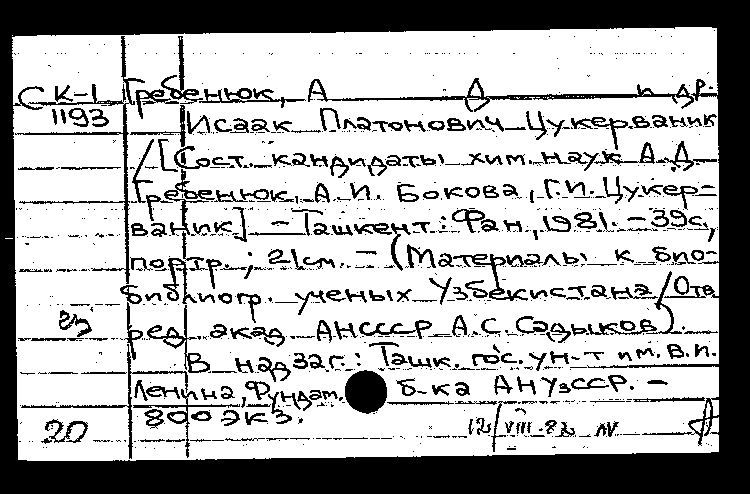 СК-1 Гребенюк, А Д и др.
1193 Исаак Платонович Цукерваник
/[Сост. кандидаты хим. наук А.Д.
Гребенюк, А.И. Бокова, Г.И. Цукер-
ваник] - Ташкент: Фан, 1981. - 39с,
портр.; 21см. - (Материалы к био-
библиогр. ученых Узбекистана/Отв
ред акад АНСССР А.С. Садыков).
В надзаг.: Ташк. гос. ун-т им. В.И.
Ленина, Фундам. б-ка АНУзССР. -
800 экз.
20 12/VIII-82